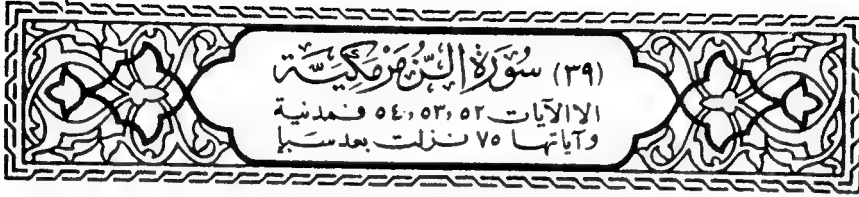 (٣٩) سُورَة الزُّمَر مَكيَّة
الا الآيات ٥٢، ٥٣، ٥٤ فمدنية
وآياتها ٧٥ نزلت بعد سَبإ